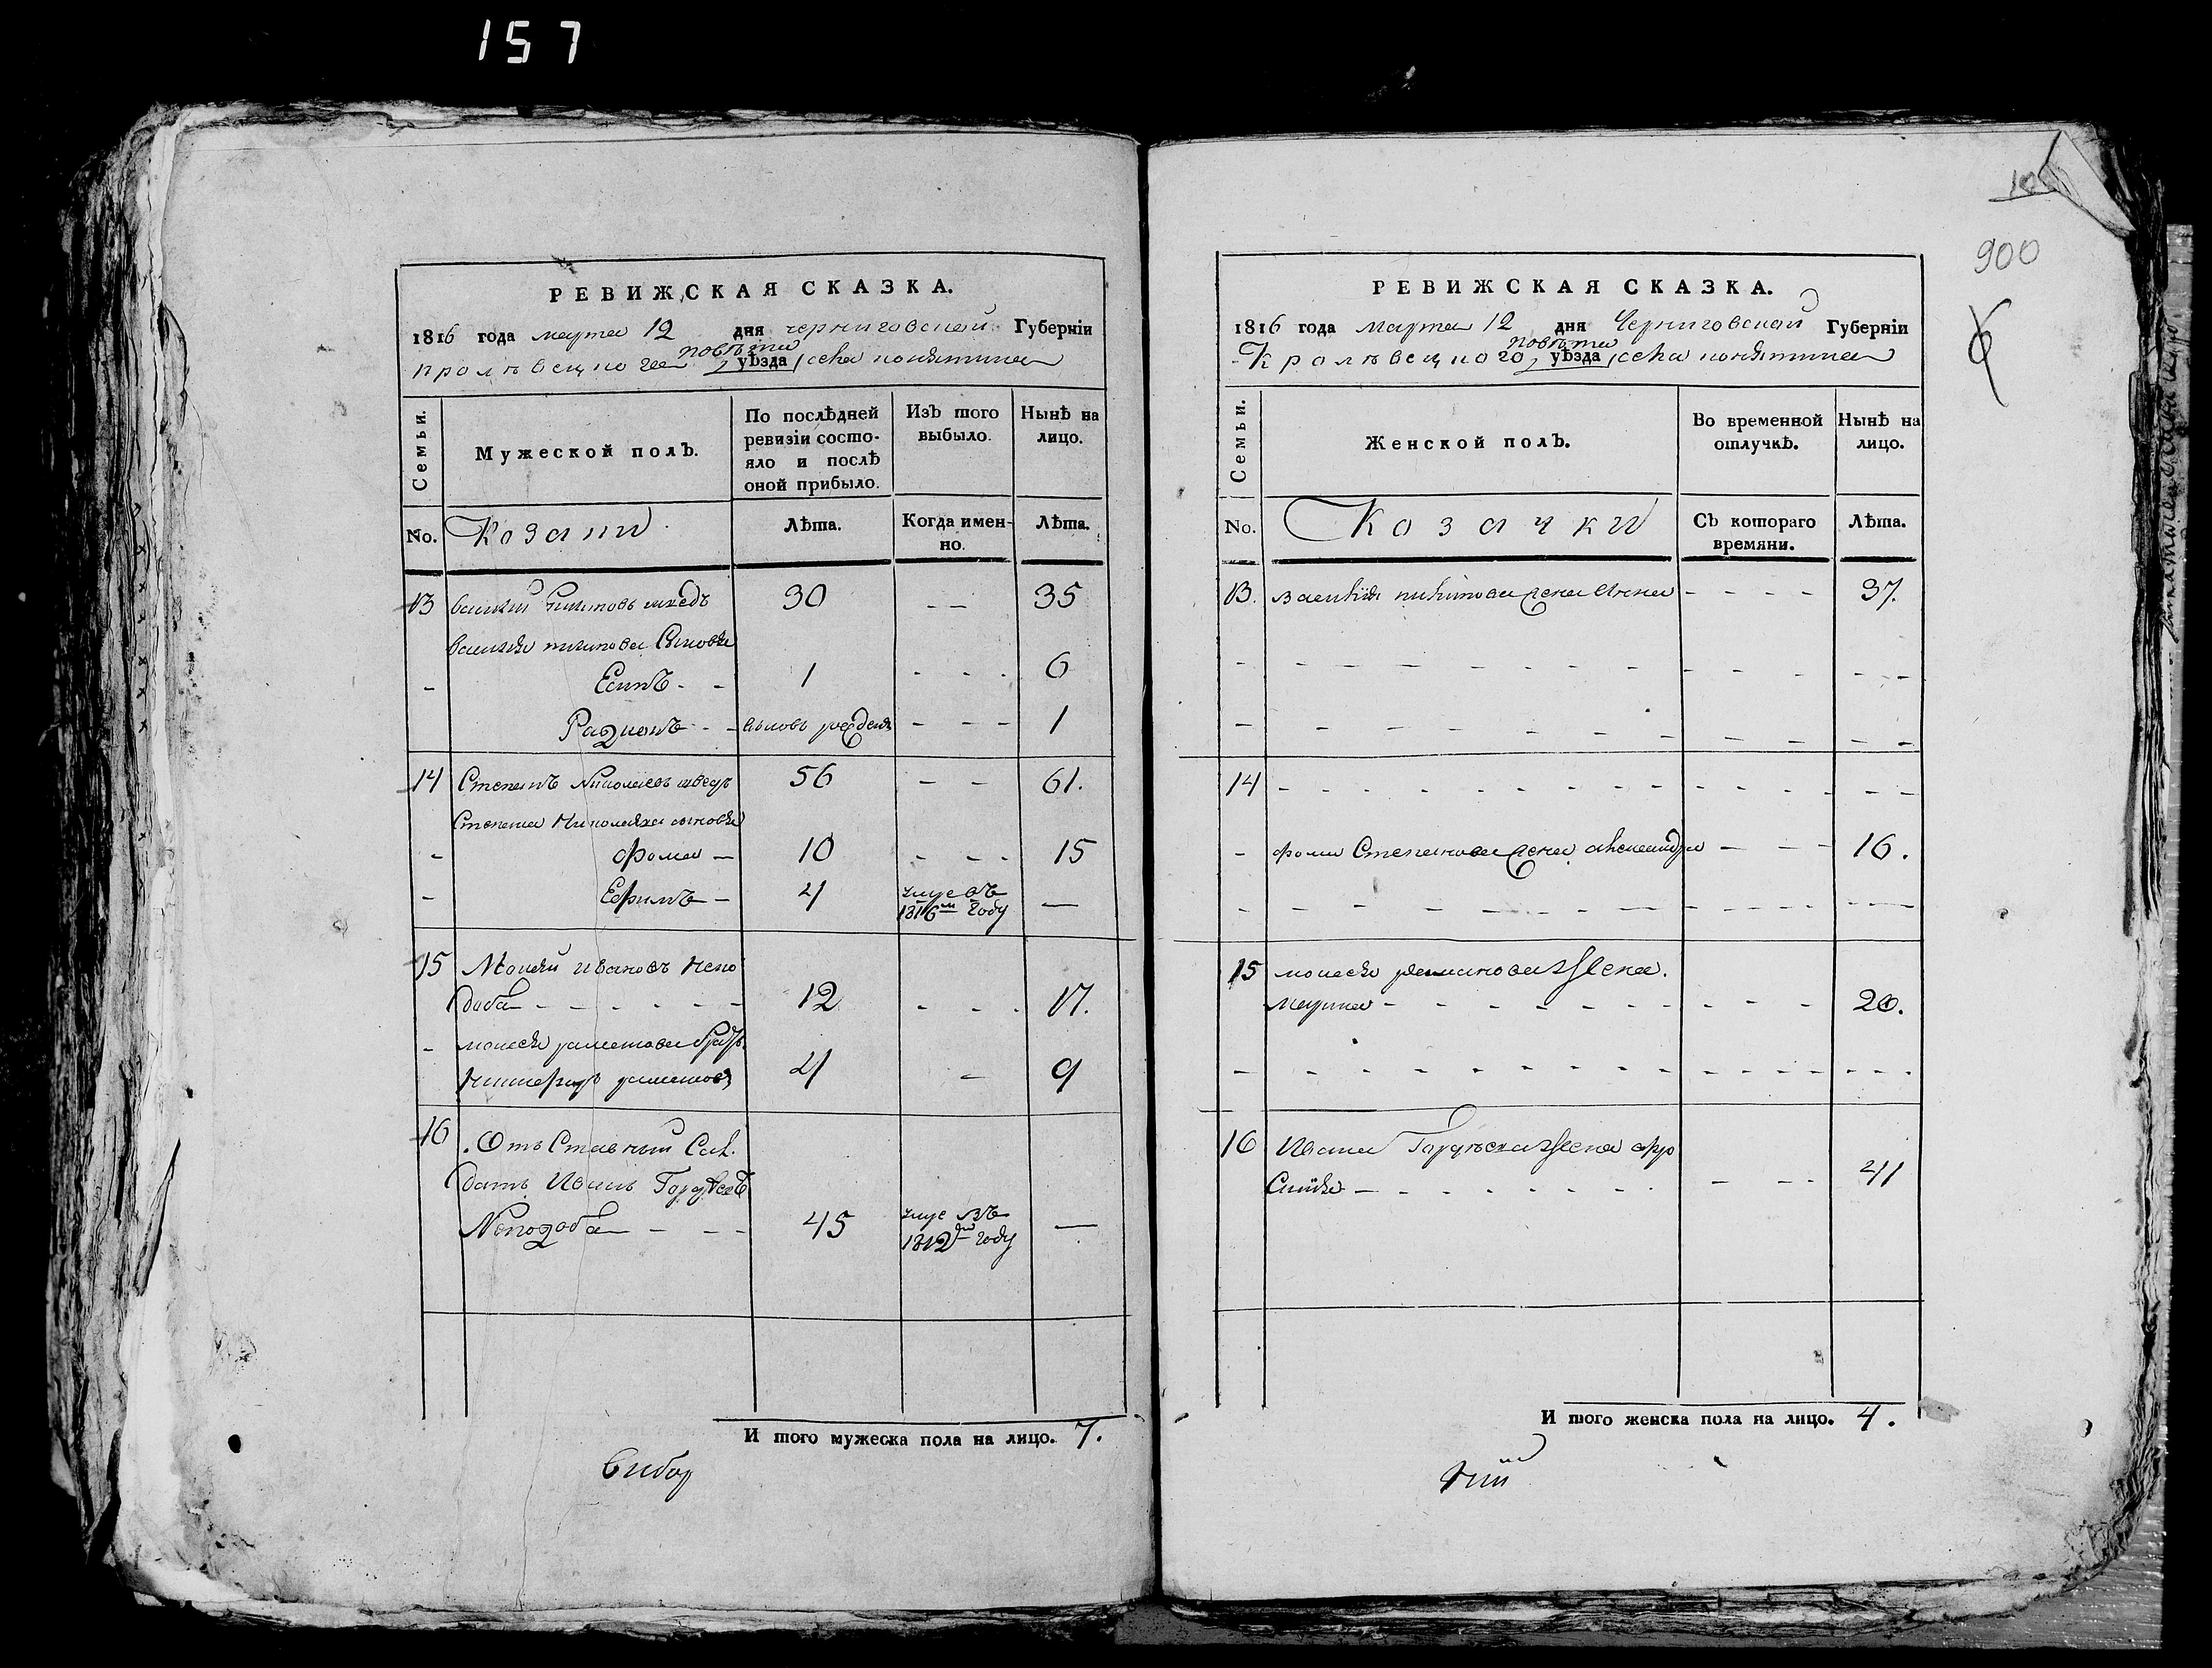 157
РЕВИЖСКАЯ СКАЗКА.
1816 года марта 12 дня черниговской Губерніи
повѣта
кролѣвецкого уѣзда села понятина
Семьи.
Мужеской полъ.
По послѣдней ревизіи состо-
яло и послѣ оной прибыло.
Изъ того выбыло.
Нынѣ на лицо.
No. Козаки
Лѣта.
Когда имен-
но.
Лѣта.
13 василій никитовъ шведъ 30 — — 35
василія никитова Синовя
- Есипъ - - 1 - - - 6
Радионъ - - вновь рожденъ - - - 1
14 Степанъ Николаевъ шведъ 56 — — 61.
Степана Николаева синовя
- фома — 10 - - - 15
- Ефимъ — 4 умре въ 1816м году —
15 Моисей ивановъ Непо
доба - - - - - - 12 - - - 17.
- моисея братъ
4 — 9
16 Отъ Ставный Сал.
датъ Иванъ Гордѣевъ
Неподоба — - - - 45 умре въ 1812м году —
И того мужеска пола на лицо. 7.
Вибор
900
РЕВИЖСКАЯ СКАЗКА.
1816 года марта 12 дня Черниговской Губерніи
повѣта
Кролѣвецкого уѣзда села понятина
Семьи.
Женской полъ.
Во временной отлучкѣ.
Нынѣ на лицо.
No. Козачки
Съ котораго времяни.
Лѣта.
13. василія никитова жена Анна - - - - 37.
14 - - - - - - - - -
- фоми Степанова жена александра — - - 16.
15 моисея жена.
марина - - - - - - - - 20.
16 Ивана Гордѣева жена эфро
синія — - - - - - - - - 41
И того женска пола на лицо. 4.
ний